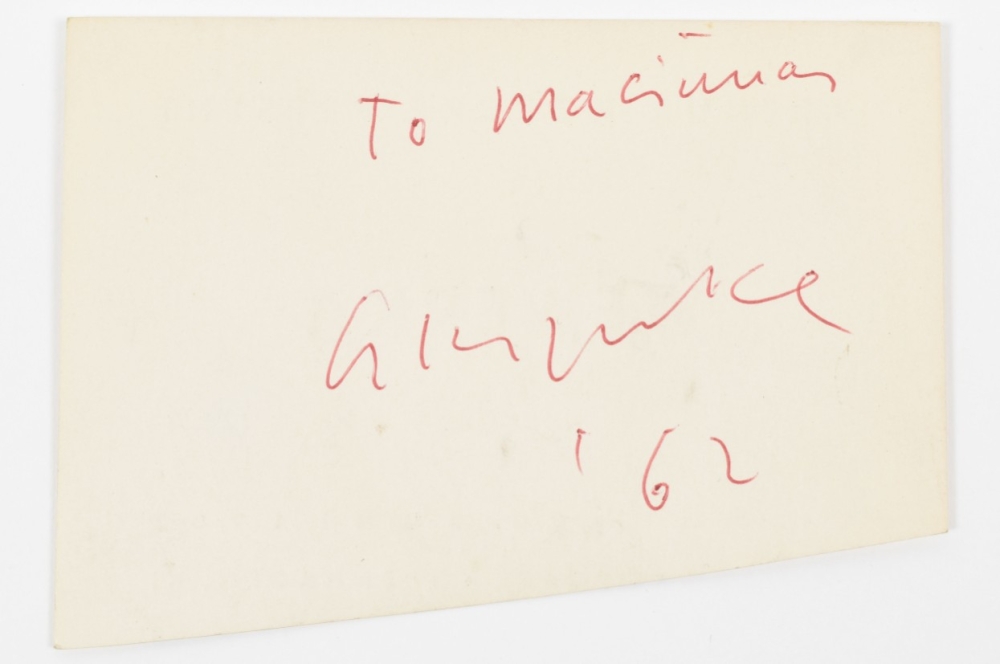 To Maciūnas
'62